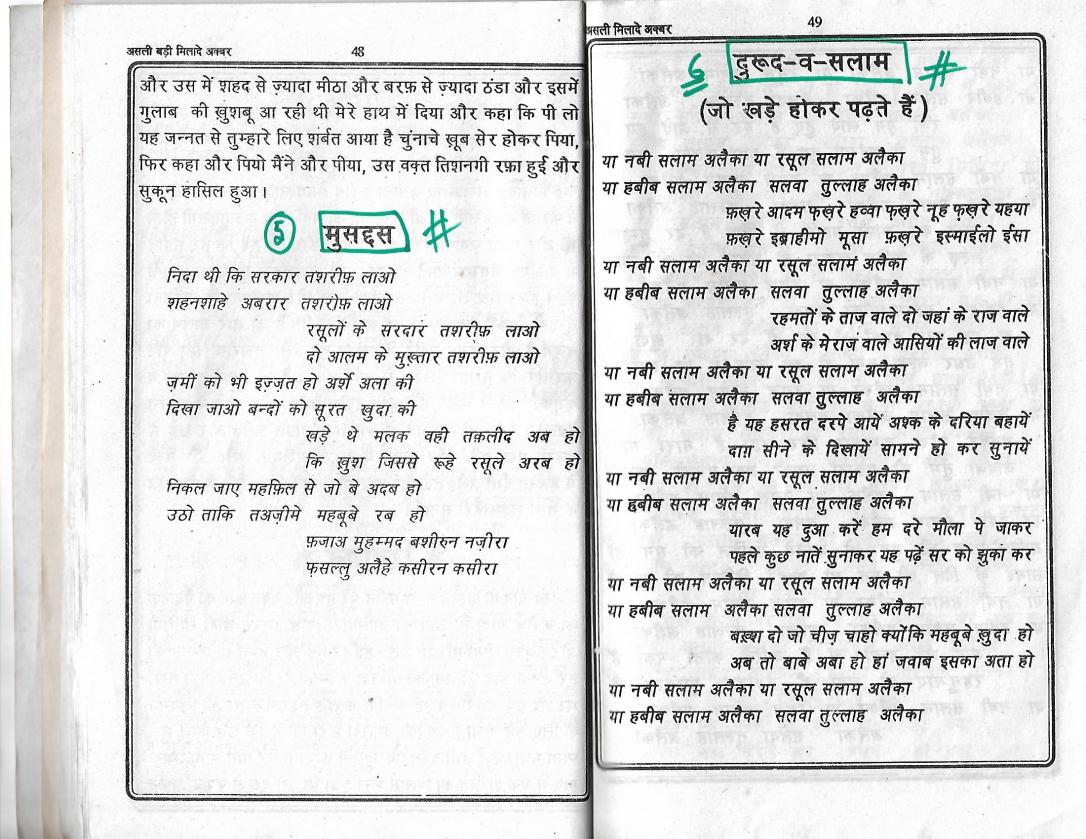 असली बड़ी मिलादे अक्बर 48
और उस में शहद से ज़्यादा मीठा और बरफ़ से ज़्यादा ठंडा और इसमें
गुलाब की ख़ुशबू आ रही थी मेरे हाथ में दिया और कहा कि पी लो
यह जन्नत से तुम्हारे लिए शर्बत आया है चुंनाचे ख़ूब सेर होकर पिया,
फिर कहा और पियो मैंने और पीया, उस वक़्त तिशनगी रफ़ा हुई और
सुकून हांसिल हुआ।
५ मुसद्दस #
निदा थी कि सरकार तशरीफ़ लाओ
शहनशाहे अबरार तशरीफ़ लाओ
रसूलों के सरदार तशरीफ़ लाओ
दो आलम के मुख़्तार तशरीफ़ लाओ
ज़मीं को भी इज़्ज़त हो अर्शे अला की
दिखा जाओ बन्दों को सूरत ख़ुदा की
खड़े थे मलक वही तक़लीद अब हो
कि ख़ुश जिससे रूहे रसूले अरब हो
निकल जाए महफ़िल से जो बे अदब हो
उठो ताकि तअज़ीमे महबूबे रब हो
फ़जाअ मुहम्मद बशीरुन नज़ीरा
फ़सल्लु अलैहे कसीरन कसीरा
असली मिलादे अक्बर 49
६ दुरूद-व-सलाम #
(जो खड़े होकर पढ़ते हैं)
या नबी सलाम अलैका या रसूल सलाम अलैका
या हबीब सलाम अलैका सलवा तुल्लाह अलैका
फ़ख़रे आदम फ़ख़रे हव्वा फ़ख़रे नूह फ़ख़रे यहया
फ़ख़रे इब्राहीमो मूसा फ़ख़रे इस्माईलो ईसा
या नबी सलाम अलैका या रसूल सलाम अलैका
या हबीब सलाम अलैका सलवा तुल्लाह अलैका
रहमतों के ताज वाले दो जहां के राज वाले
अर्श के मेराज वाले आसियों की लाज वाले
या नबी सलाम अलैका या रसूल सलाम अलैका
या हबीब सलाम अलैका सलवा तुल्लाह अलैका
है यह हसरत दरपे आयें अश्क के दरिया बहायें
दाग़ सीने के दिखायें सामने हो कर सुनायें
या नबी सलाम अलैका या रसूल सलाम अलैका
या हबीब सलाम अलैका सलवा तुल्लाह अलैका
यारब यह दुआ करें हम दरे मौला पे जाकर
पहले कुछ नातें सुनाकर यह पढ़ें सर को झुका कर
या नबी सलाम अलैका या रसूल सलाम अलैका
या हबीब सलाम अलैका सलवा तुल्लाह अलैका
बख़्श दो जो चीज़ चाहो क्योंकि महबूबे ख़ुदा हो
अब तो बाबे अबा हो हां जवाब इसका अता हो
या नबी सलाम अलैका या रसूल सलाम अलैका
या हबीब सलाम अलैका सलवा तुल्लाह अलैका